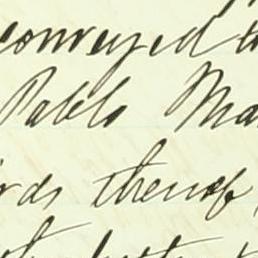 conveyed t
Pablo Ma
rds thereof